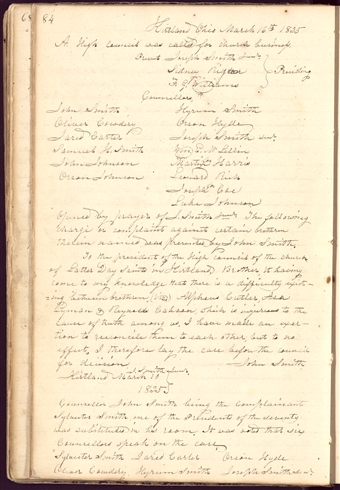 68 84
Kirtland Ohio March 16th 1835
A High council was called for church buisness
Present Joseph Smith Junr
Sidney Rigdon } Presiding
F. G. Williams
Councillors
John Smith Hyrum Smith
Oliver Cowdery Orson Hyde
Jared Carter Joseph Smith senr
Samuel H. Smith Wm E. McLellin
John Johnson Martin Harris
Orson Johnson Leonard Rich
Joseph Coe
Luke Johnson
Opened by prayer of J. Smith The following
charge or complaint against certain brethren
therein named was presented by John Smith.
To the president of the high council of the church
of Latter Day Saints in Kirtland Brother, it having
come to my knowledge that there is a difficulty exist-
ing between brethren (viz) Alpheus Cutler, Asa
Lyman & Reynolds Cahoon, which is injurious to the
cause of truth among us, I have made an exer-
tion to reconcile them to each other, but to no
effect, I therefore lay the case before the council
for decision John Smith
J. Smith
Kirtland March 10
1835
Councillor John Smith being the complainant
Sylvester Smith one of the presidents of the seventy
was substituted in his room. It was voted that six
Councillors speak on the case,
Sylvester Smith Jared Carter Orson Hyde
Oliver Cowdery, Hyrum Smith Joseph Smith